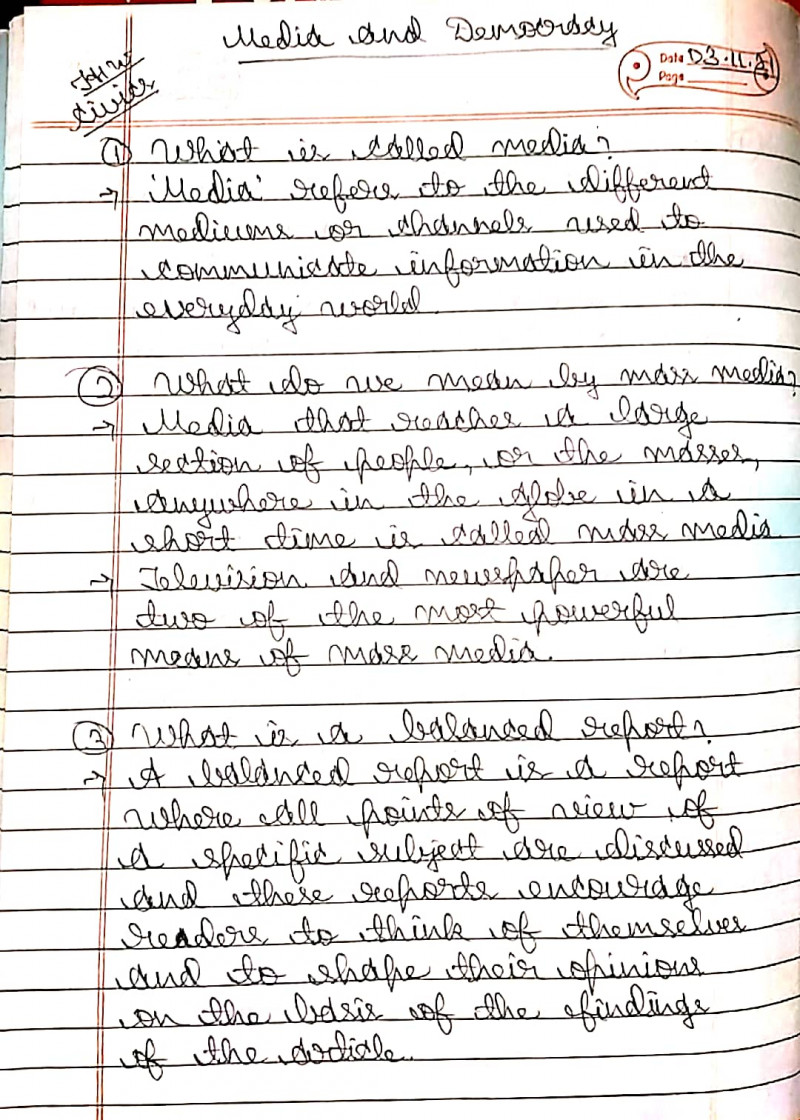 Media and Democracy
H.W
Civics
Date 03.11.21
Page
① What is called media?
→ 'Media' refers to the different
mediums or channels used to
communicate information in the
everyday world.
② What do we mean by mass media?
→ Media that reaches a large
section of people, or the masses,
anywhere in the globe in a
short time is called mass media
→ Television and newspaper are
two of the most powerful
means of mass media.
③ What is a balanced report?
→ A balanced report is a report
where all points of view of
a specific subject are discussed
and these reports encourage
readers to think of themselves
and to shape their opinions
on the basis of the findings
of the article.